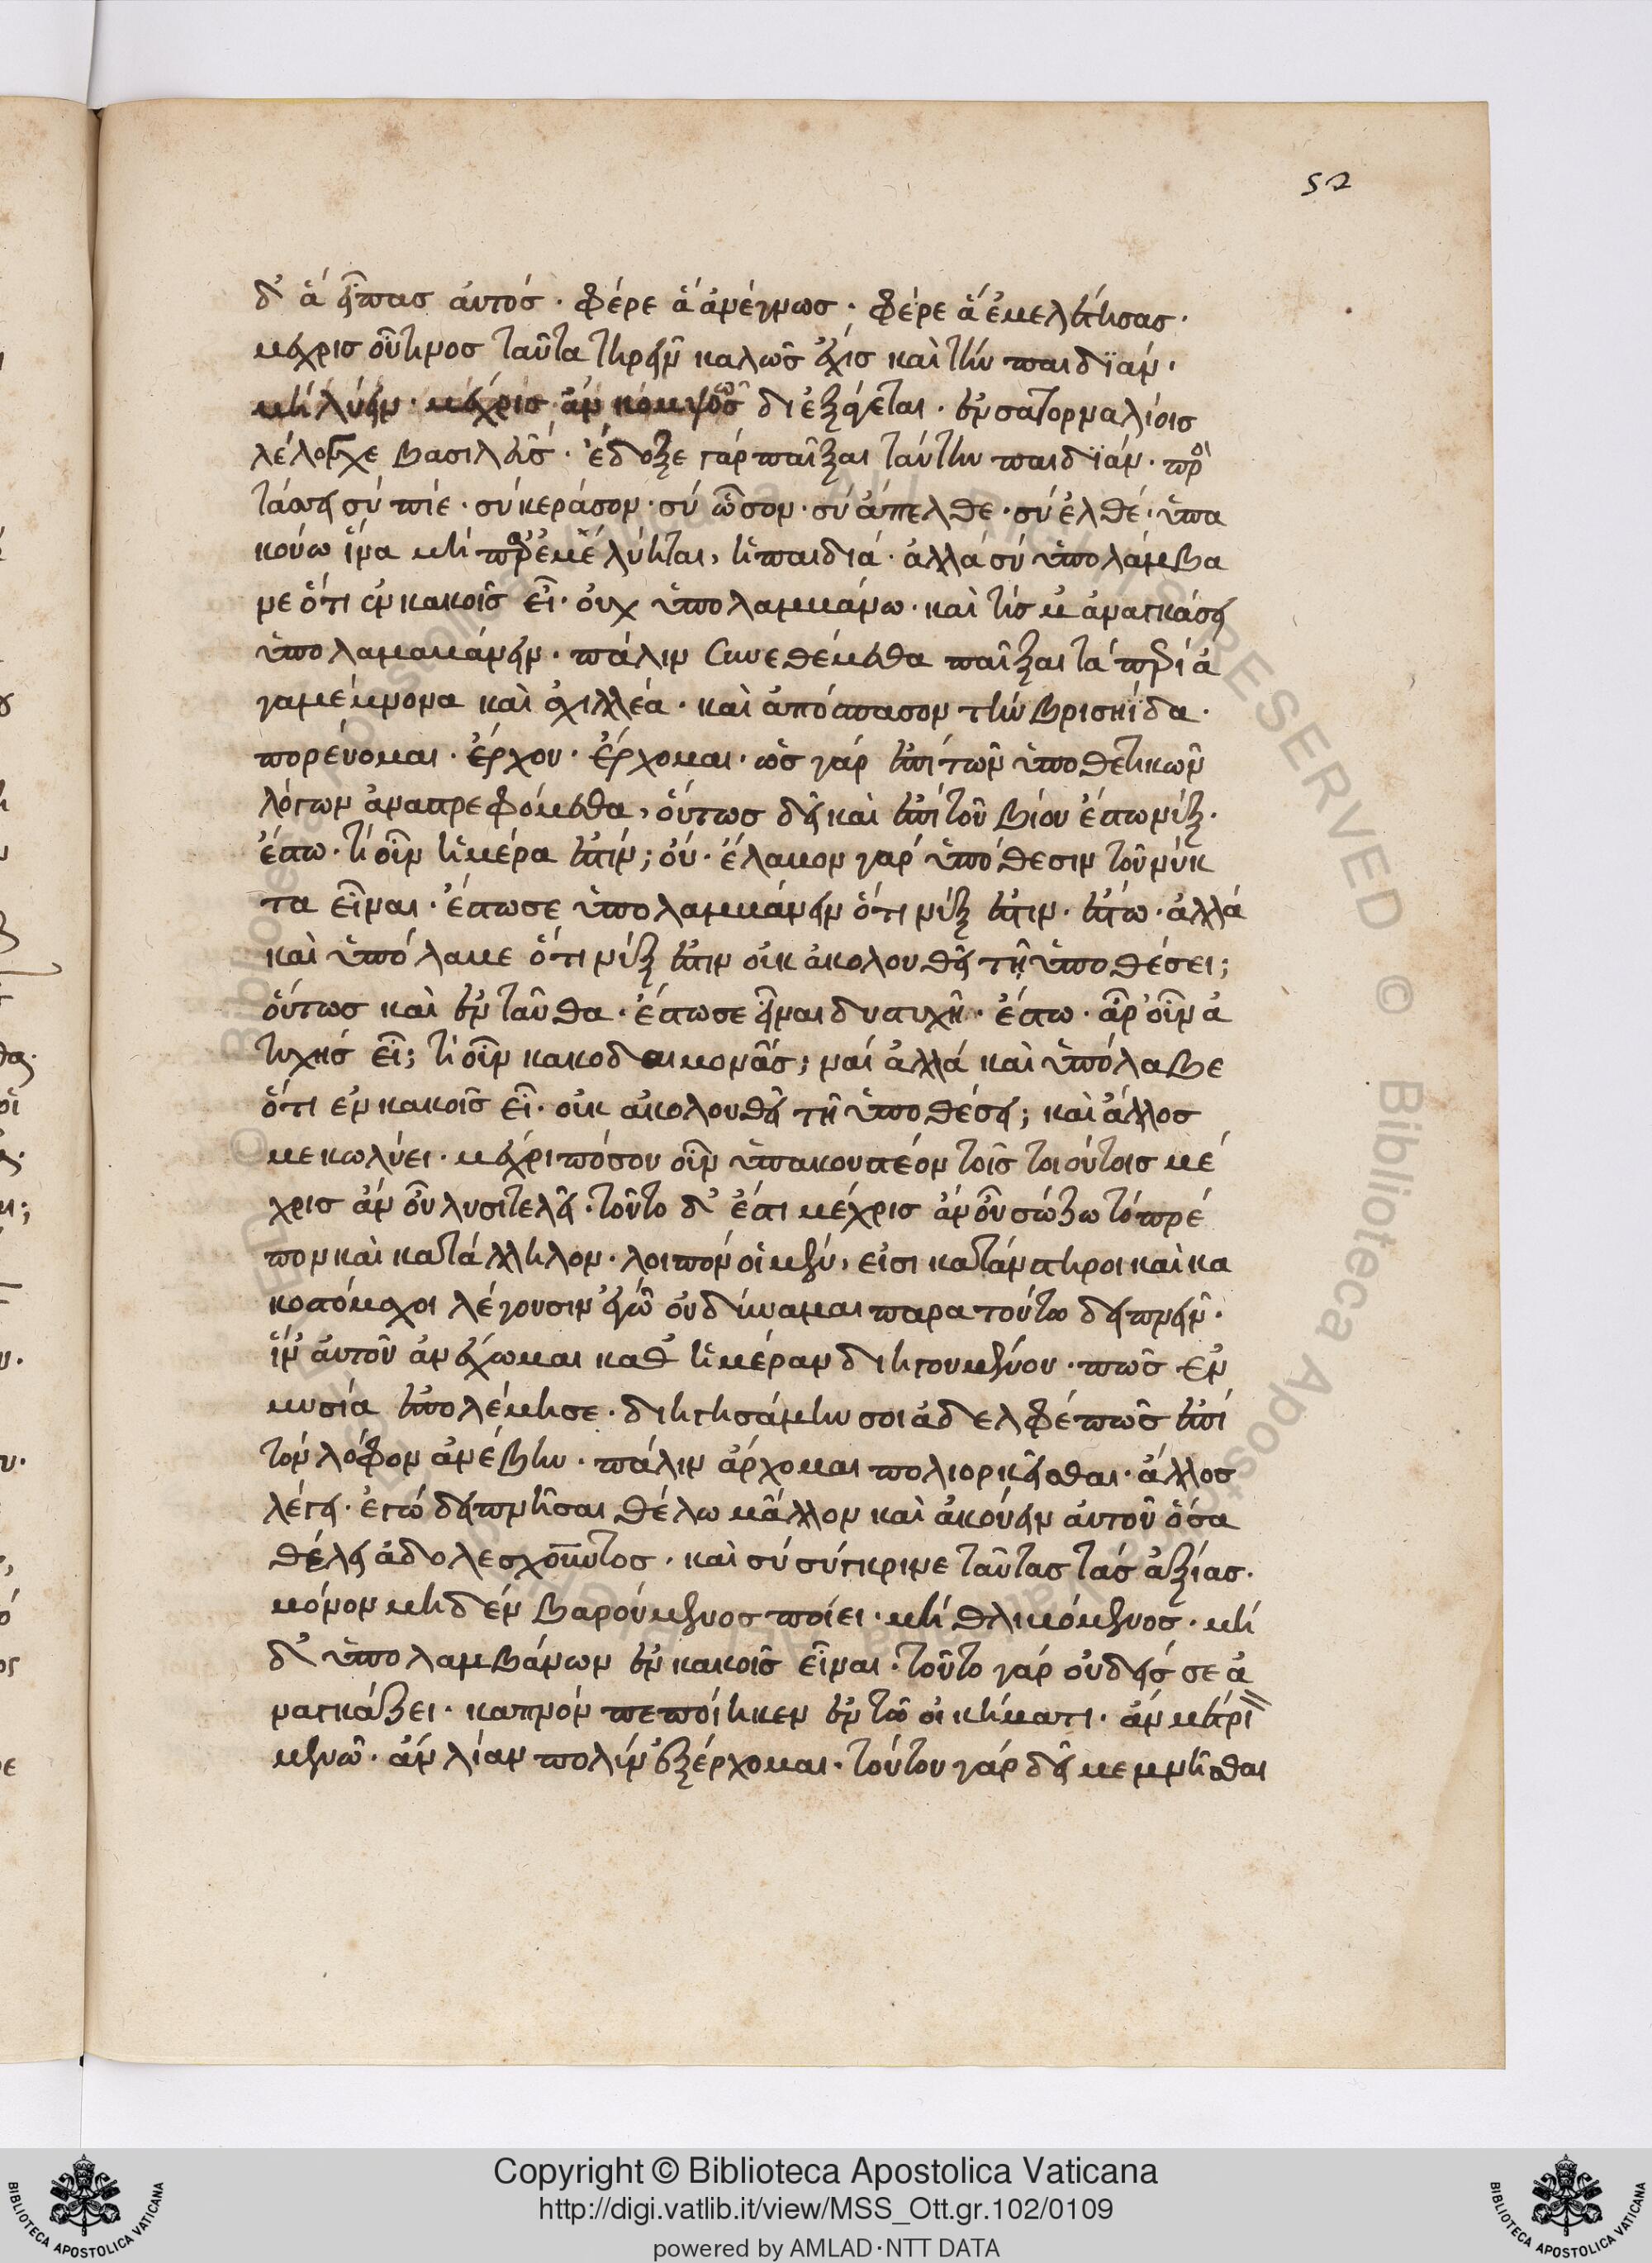 52
δ' ἃ εἶπας αὐτός · φέρε ἃ ἀνέγνως · φέρε ἃ ἐμελέτησας ·
μέχρις οὗ τινος ταῦτα τηρεῖν καλῶς ἔχει καὶ τὴν παιδϊάν ·
μὴ λύειν · μέχρις ἂν κομψῶς διεξάγεται · ἐν σατορναλίοις
λέλογχε βασιλεῦς · ἔδοξε γάρ παῖξαι ταύτην παιδϊάν · προ
τάσσει σύ πίε · σύ κέρασον · σύ ᾶσον · σύ ἄπελθε · σύ ἐλθέ · ὑπα
κούω ἵνα μή παρ' ἐμὲ λύηται, ἡ παιδιά · ἀλλά σύ ὑπολάμβα
νε ὅτι ἐν κακοῖς εἶ · οὐχ ὑπολαμβάνω · καὶ τίς μ' ἀναγκάσει
ὑπολαμβάνειν · πάλιν συνεθέμεθα παῖξαι τά περί ἀ
γαμέμνονα καὶ ἀχιλλέα · καὶ ἀπόσπασον τὴν βρισηίδα ·
πορεύομαι · ἔρχου · ἔρχομαι · ὡς γάρ ἐπί τῶν ὑποθετικῶν
λόγων ἀναστρεφόμεθα, οὕτως δεῖ καὶ ἐπί τοῦ βίου ἔστω νύξ ·
ἔστω · τί οὖν ἡμέρα ἐστίν; οὐ · ἔλαβον γάρ ὑπόθεσιν τοῦ νύκ
τα εἶναι · ἔστω σε ὑπολαμβάνειν ὅτι νύξ ἐστιν · ἔστω · ἀλλά
καὶ ὑπόλαβε ὅτι νύξ ἐστιν οὐκ ἀκολουθεῖ τῇ ὑποθέσει;
οὕτως καὶ ἐνταῦθα · ἔστω σε εἶναι δυστυχῆ · ἔστω · ἆρ' οὖν ἀ
τυχής εἶ; τί οὖν κακοδαιμονᾶς; ναί ἀλλά καὶ ὑπόλαβε
ὅτι ἐν κακοῖς εἶ · οὐκ ἀκολουθεῖ τῇ ὑποθέσει; καὶ ἄλλος
με κωλύει · μέχρι πόσου οὖν ὑπακουστέον τοῖς τοιούτοις μέ
χρις ἂν οὗ λυσιτελεῖ · τοῦτο δ' ἔστι μέχρις ἂν οὗ σώζω τό πρέ
πον καὶ κατάλληλον · λοιπόν οἱ μέν, εἰσι κατάνστηροι καὶ κα
κοστόμαχοι λέγουσιν ἐγὼ οὐ δύναμαι παρα τούτω δειπνεῖν ·
ἵν' αὐτοῦ ἀνέχωμαι καθ' ἡμέραν διηγουμένου · πῶς ἐν
μυσία ἐπολέμησε · διηγησάμην σοι ἀδελφέ πῶς ἐπί
τόν λόφον ἀνέβην · πάλιν ἄρχομαι πολιορκεῖσθαι · ἄλλος
λέγει · ἐγώ δειπνῆσαι θέλω μᾶλλον καὶ ἀκούειν αὐτοῦ ὅσα
θέλει ἀδολεσχοῦντος · καὶ σύ σύγκρινε ταῦτας τάς ἀξίας ·
μόνον μηδέν βαρούμενος ποίει · μή θλιβόμενος · μή
δ' ὑπολαμβάνων ἐν κακοῖς εἶναι · τοῦτο γάρ οὐδείς σε ἀ
ναγκάζει · καπνόν πεποίηκεν ἐν τῶ οἰκήματι · ἄν μέτρι
μενῶ · ἄν λίαν πολύν ἐξέρχομαι · τούτου γάρ δεῖ μεμνῆσθαι
Copyright © Biblioteca Apostolica Vaticana
http://digi.vatlib.it/view/MSS_Ott.gr.102/0109
powered by AMLAD·NTT DATA
BIBLIOTECA APOSTOLICA VATICANA
BIBLIOTECA APOSTOLICA VATICANA